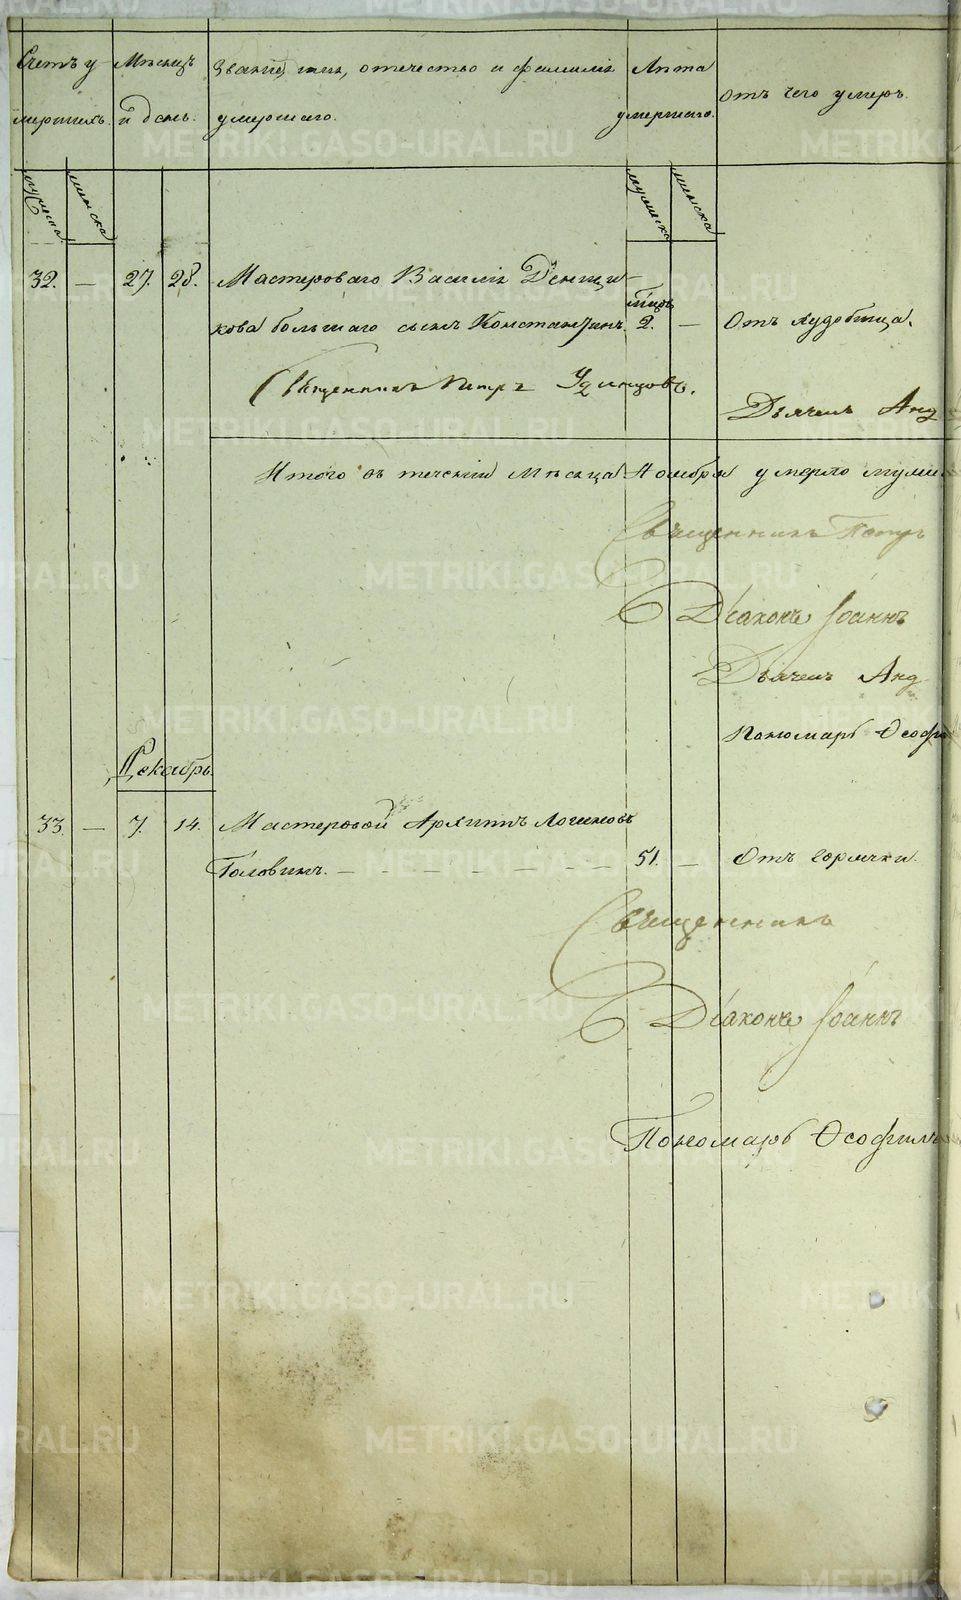 Счетъ у Мѣсяцъ Званіе, имя, отечество и фамилія Лѣта
мершихъ. и день. умершаго. умершаго. Отъ чего умеръ.
мужеска женска мужеска женска
32. — 27. 28. Мастероваго Василія Денщи-
кова большаго сынъ Константинъ. 2. — Отъ худобища.
Священникъ Петръ Удинцовъ.
Дьячекъ Анд
Итого въ теченіи Мѣсяца Ноября умерло муже
Священникъ Петръ
Діаконъ Іоаннъ
Дьячекъ Анд
Пономарь Ѳеофи
Декабрь.
33. — 7. 14. Мастеровой Архипъ Логиновъ
Головинъ. — — — — — — — 51. — Отъ горячки.
Священникъ
Діаконъ Іоаннъ
Пономарь Ѳеофилъ
METRIKI.GASO-URAL.RU